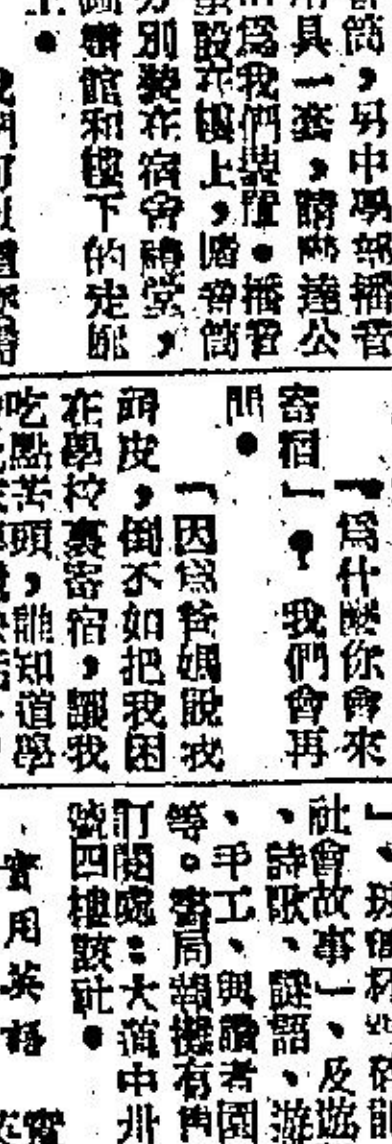 筒，男中學部播音
用具一套，請聯達公
為我們裝置。播音
設在樓上，播音筒
分別裝在宿舍禮堂，
圖書館和樓下的走廊
上。
「為什麼你會來
寄宿」？我們會再
問。
「因為爸媽說我
頑皮，倒不如把我困
在學校裏寄宿，讓我
吃點苦頭，誰知道學
社會故事」、及遊
、詩歌、謎語、遊
、手工、與讀者園
等。書局報攤有售
訂閱處：大道中卅
號四樓該社。
實用英語